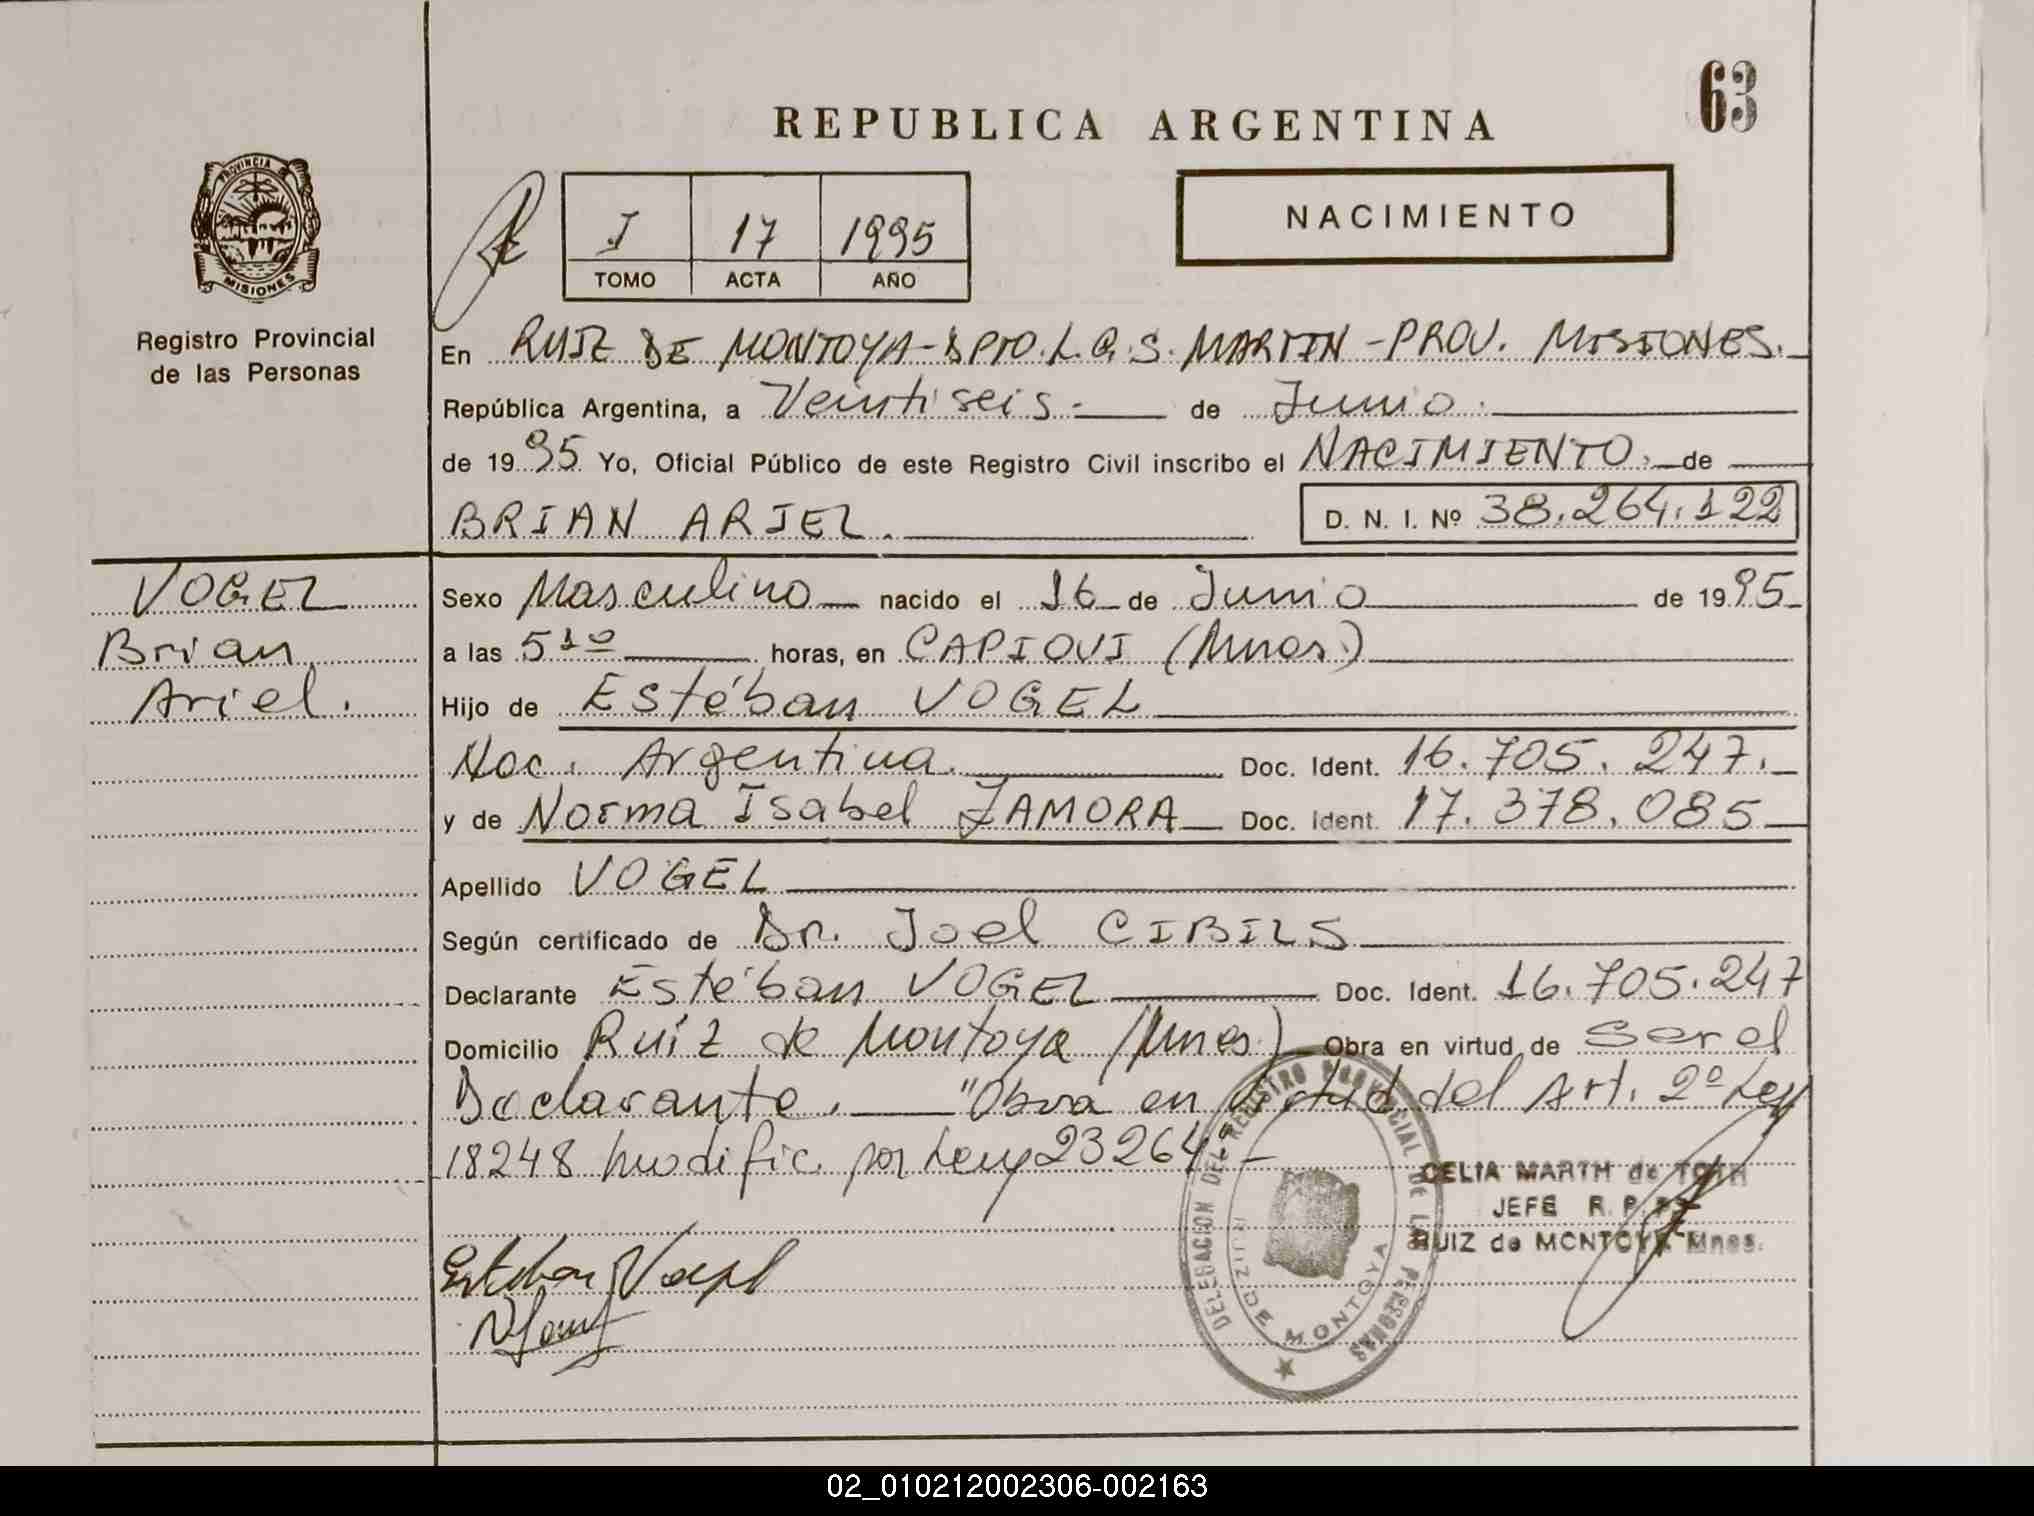 63
REPUBLICA ARGENTINA
PROVINCIA
MISIONES
Registro Provincial
de las Personas
I 17 1995
TOMO ACTA AÑO
NACIMIENTO
En RUIZ DE MONTOYA - DPTO. L.G.S. MARTIN - PROV. MISIONES.
República Argentina, a Veintiseis.- de Junio.
de 1995 Yo, Oficial Público de este Registro Civil inscribo el NACIMIENTO. de
BRIAN ARIEL. D. N. I. Nº 38.264.122
VOGEL
Brian
Ariel.
Sexo Masculino nacido el 16 de Junio de 1995
a las 5 10 horas, en CAPIOVI (Mnes.)
Hijo de Estéban VOGEL
Nac. Argentina. Doc. Ident. 16.705.247.
y de Norma Isabel ZAMORA Doc. Ident. 17.378.085
Apellido VOGEL
Según certificado de Dr. Joel CIBILS
Declarante Estéban VOGEL Doc. Ident. 16.705.247
Domicilio Ruiz de Montoya (Mnes.) Obra en virtud de Ser el
Declarante. "Obra en virtud del Art. 2º Ley
18248 modific. por Ley 23264".-
CELIA MARTH de TOTH
JEFE R. P. P.
RUIZ de MONTOYA - Mnes.
Esteban Vogel
DELEGACION DEL REGISTRO PROVINCIAL DE LAS PERSONAS
RUIZ DE MONTOYA
02_010212002306-002163